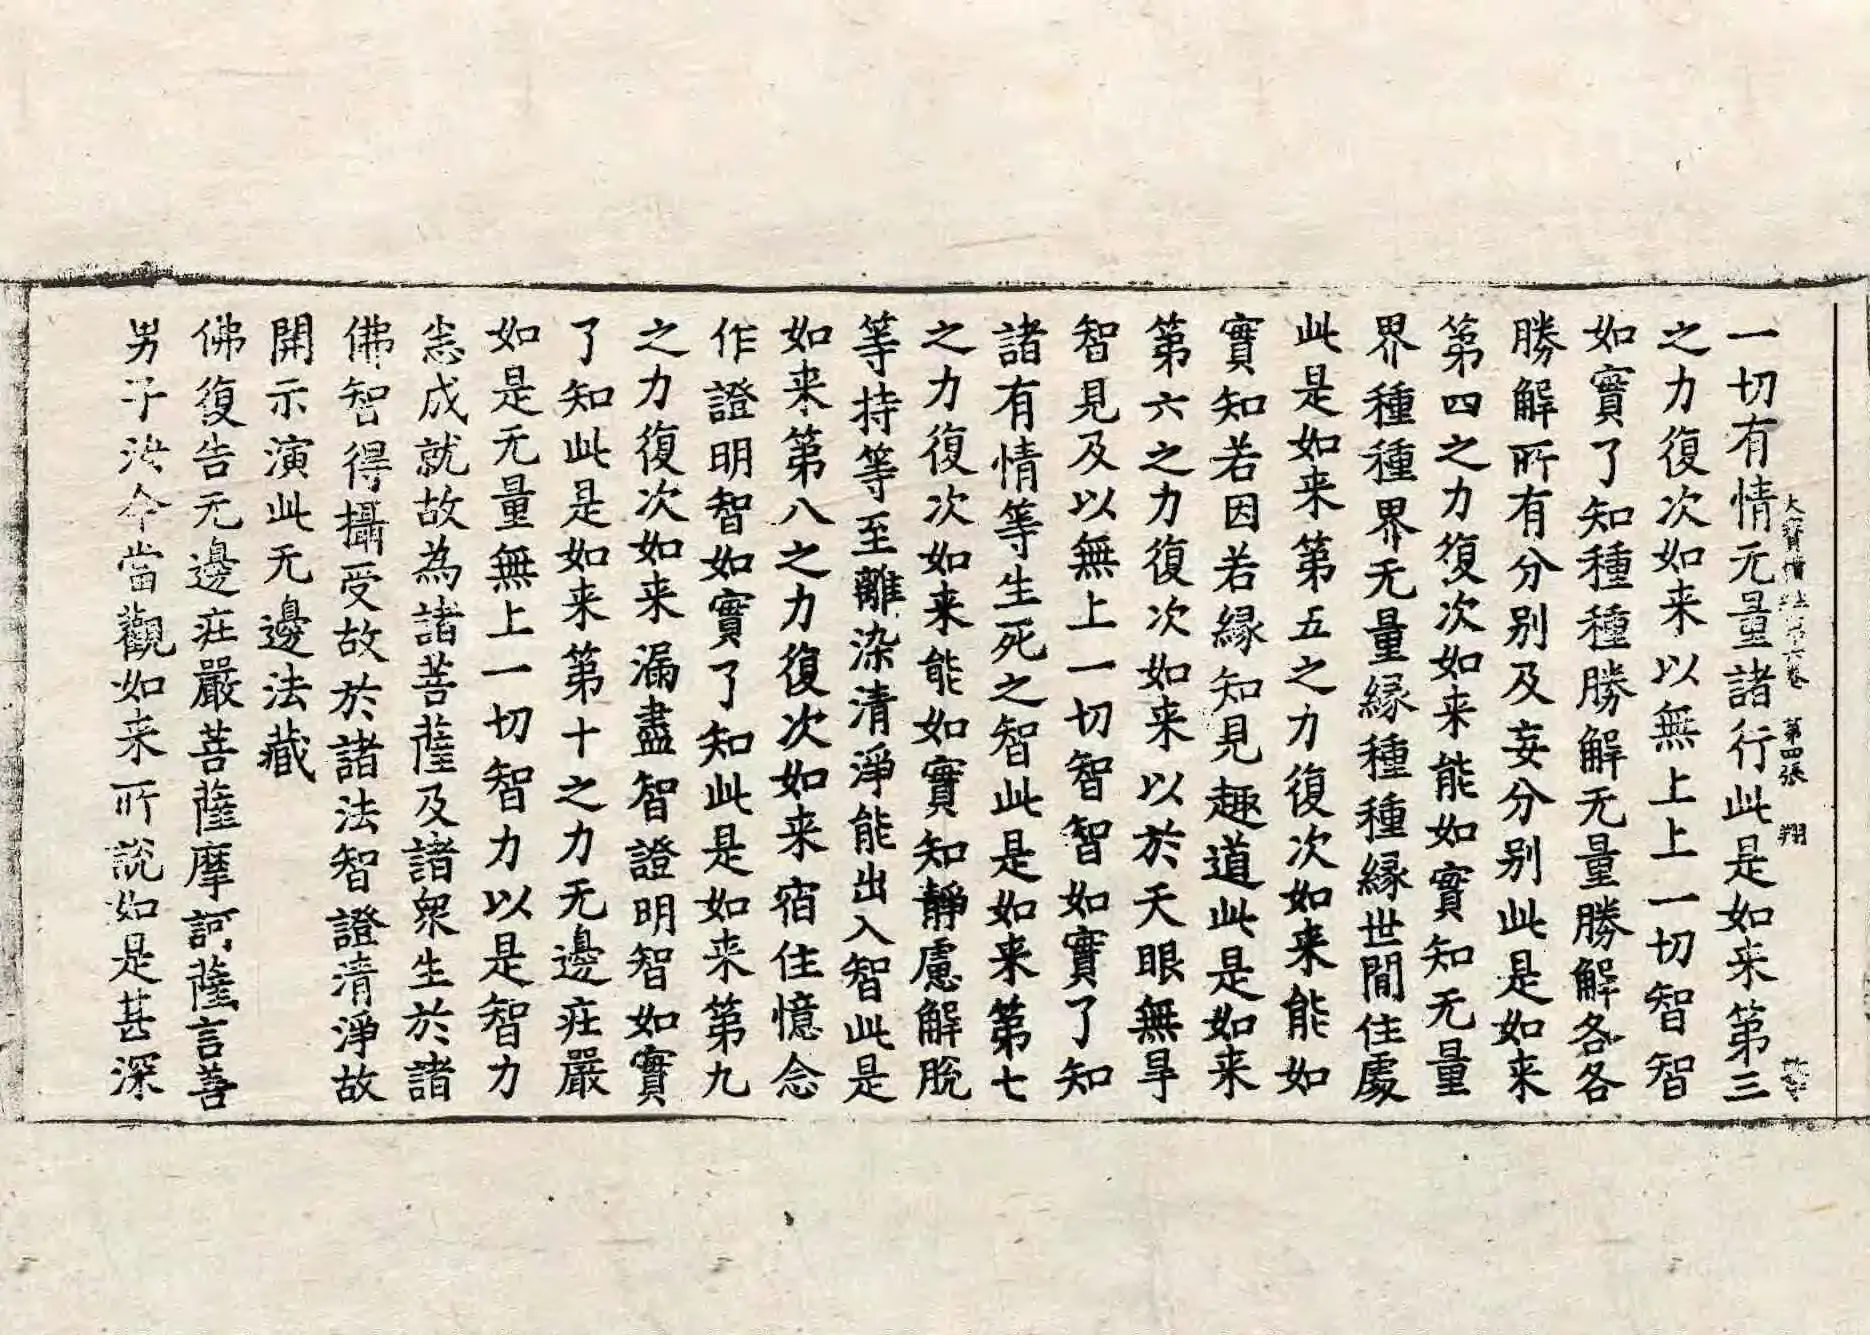 大寶積經第六卷 第四張 翔
一切有情无量諸行此是如来第三
之力復次如来以無上上一切智智
如實了知種種勝解无量勝解各各
勝解所有分别及妄分别此是如来
第四之力復次如来能如實知无量
界種種界无量縁種種縁世間住處
此是如来第五之力復次如来能如
實知若因若縁知見趣道此是如来
第六之力復次如来以於天眼無旱
智見及以無上一切智智如實了知
諸有情等生死之智此是如来第七
之力復次如来能如實知靜慮解脫
等持等至離染清淨能出入智此是
如来第八之力復次如来宿住憶念
作證明智如實了知此是如来第九
之力復次如来漏盡智證明智如實
了知此是如来第十之力无邊莊嚴
如是无量無上一切智力以是智力
悉成就故為諸菩薩及諸衆生於諸
佛智得攝受故於諸法智證清淨故
開示演此无邊法藏
佛復告无邊莊嚴菩薩摩訶薩言善
男子汝今當觀如来所說如是甚深